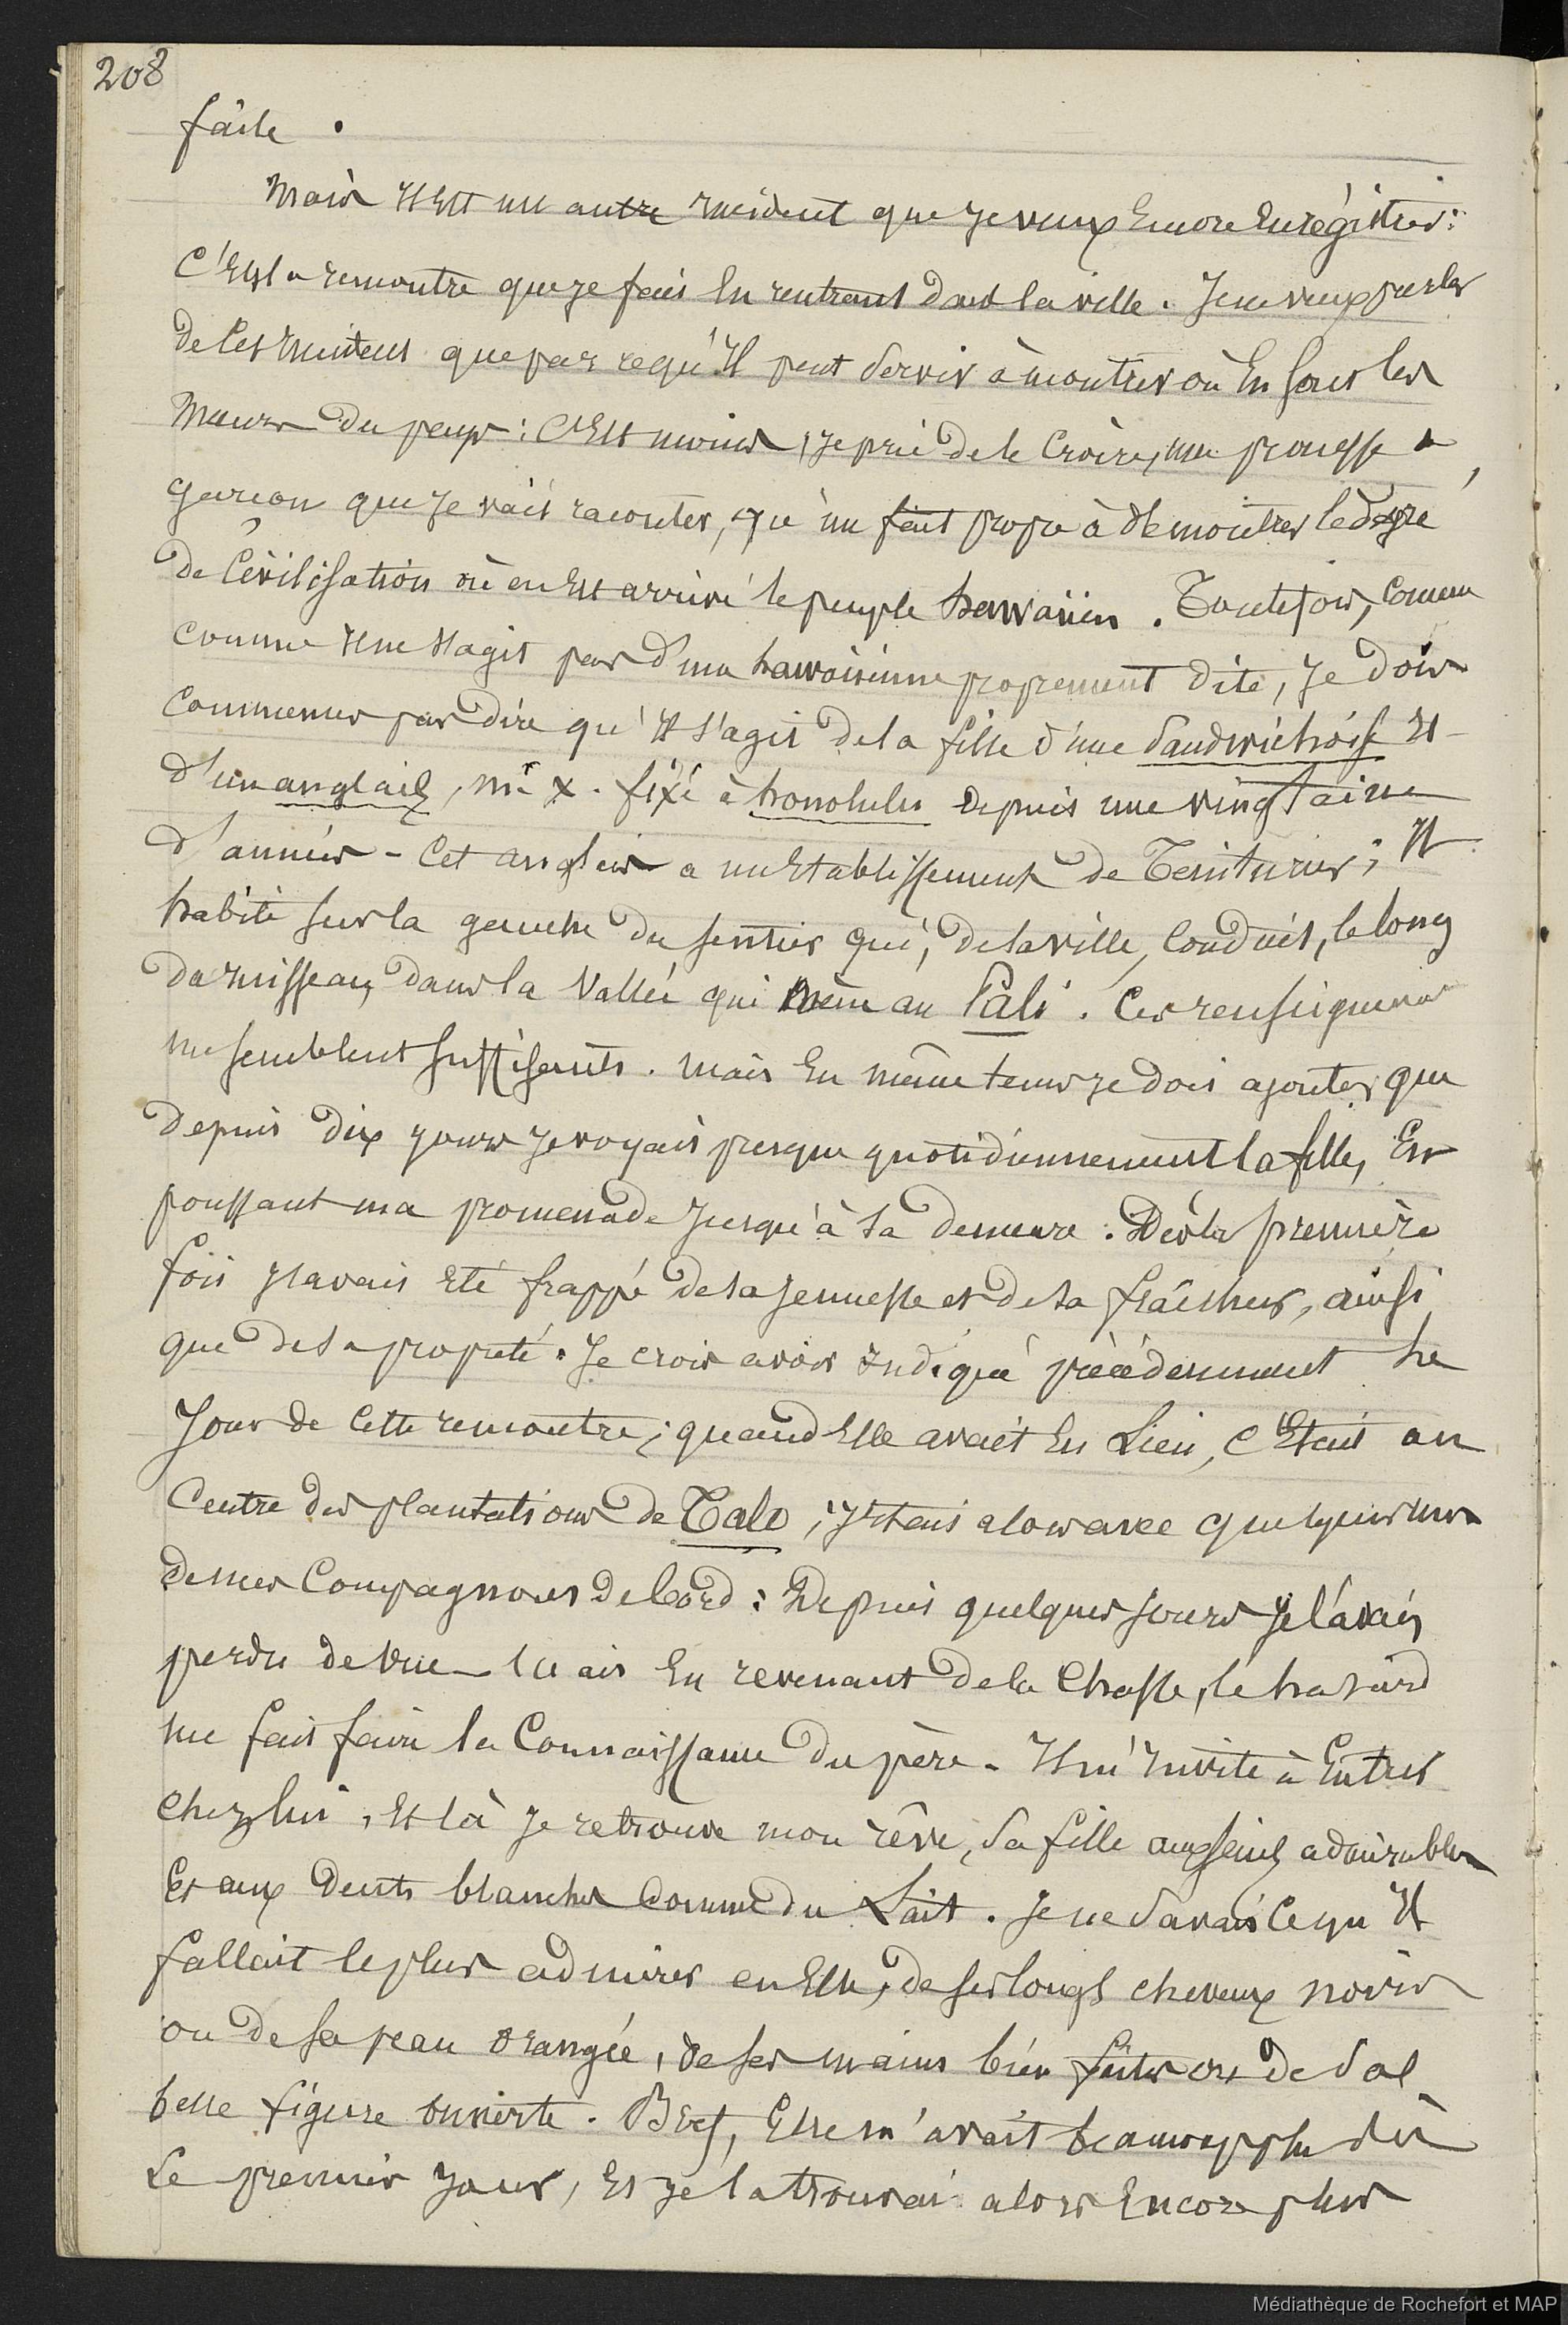 208
facile .
Mais Il Est un autre Incident que Je veux Encore Enrégistrer :
C'Est la rencontre que Je fais En rentrant dans la ville . Je ne veux parler
de Cet que par ce qu'Il peut Servir à montrer où En sont les
Mœurs du pays : C'Est moins , Je prie de le Croire, une prouesse de
garçon que Je vais raconter, qu'un fait propre à démontrer le dégré
de Civilisation où en Est arrivé le peuple hawaïien . Toutefois, comme
comme Il ne S'agit pas d'une hawaïienne proprement dite, Je dois
Commencer par dire qu'Il s'agit de la fille d'une Sandwichoise Et
d'un anglais, Mr X . fixé à honolulu depuis une vingtaine
d'années - Cet anglais a un Etablissement de Teinturier ; Il
habite sur la gauche du sentier qui, de la ville, Conduit, le long
du ruisseau, dans la Vallée qui Mène au Pali . Ces renseignements
me semblent suffisants . Mais En même tems Je dois ajouter que
depuis dix jours Je voyais presque quotidiennement la fille, En
poussant ma promenade Jusqu'à Sa demeure . Dès la première
fois J'avais Eté frappé de sa Jeunesse et de sa fraîcheur, ainsi
que de sa propreté . Je crois avoir Indiqué précédemment le
Jour de Cette rencontre ; quand Elle avait Eu Lieu, C'Etait au
Centre des plantations de Talo ; J'Etais alors avec quelques uns
de mes Compagnons de bord : Depuis quelques Jours Je l'avais
perdu de vue - Mais En revenant de la Chasse, le hasard
me fait faire la Connaissance du père . Il m'Invite à Entrer
chez lui , Et là Je retrouve mon rêve, Sa fille aux seins admirables
Et aux Dents blanches Comme du Lait . Je ne Savais Ce qu'Il
fallait le plus admirer en Elle, de ses longs cheveux noirs
ou de sa peau Orangée, de ses mains bien faites ou de Sa
belle figure ouverte . Bref, Elle m'avait beaucoup plu dès
Le premier Jour, Et Je la trouvai alors Encore plus
Médiathèque de Rochefort et MAP